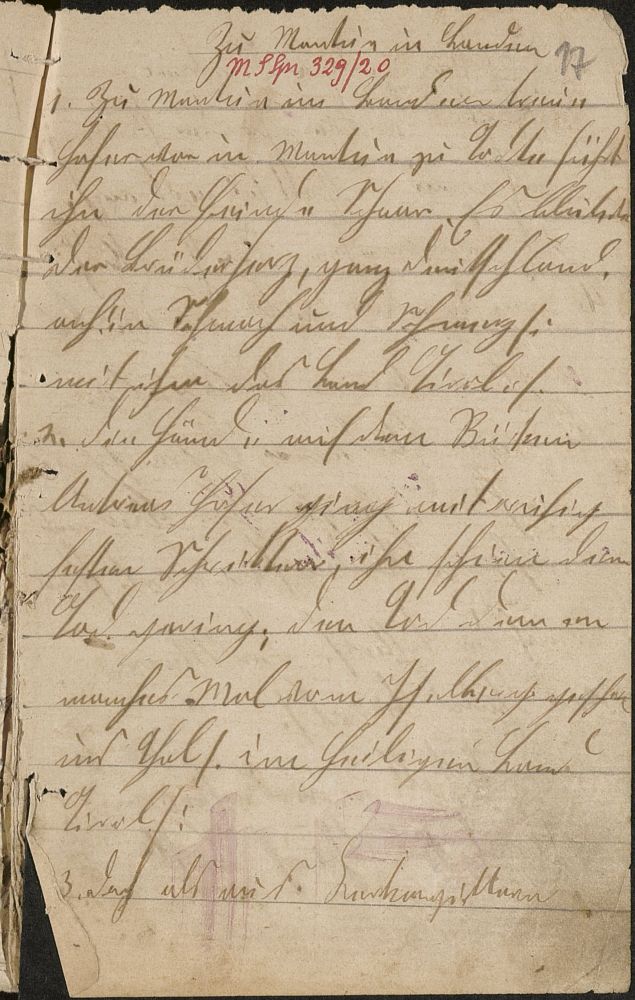 Zu Mantua in Banden 17
MSGn 329/20
1. Zu Mantua in Banden treue
Hofer war in Mantua zu Tode führt
ihn der Feinde Schaar. Es blutete
der Brüderherz, ganz Deutschland,
ach in Schmach und Schmerz /:
mit ihm das Land Tirol :/.
2. die Hände auf dem Rücken
Andreas Hofer ging mit ruhig
festen Schritten, ihm schien der
Tod gering, den Tod den er
manches Mal vom Iselberg geschickt
ins Thal /: im heiligen Land
Tirol /:
3. doch als aus Kerkergittern